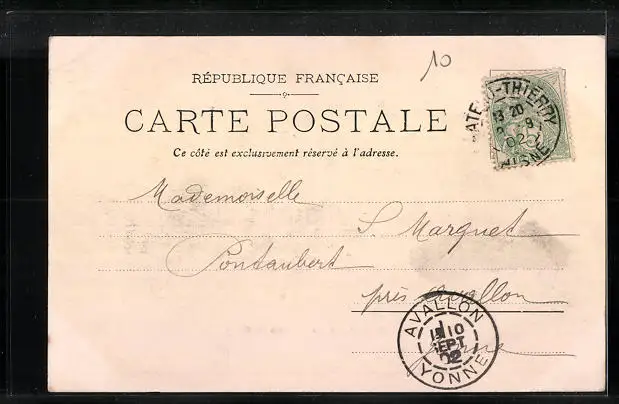 10
RÉPUBLIQUE FRANÇAISE
CARTE POSTALE
Ce côté est exclusivement réservé à l'adresse.
CHATEAU-THIERRY
13 20
9
02
AISNE
Mademoiselle
S Marquet
Pontaubert
près Avallon
Yonne
AVALLON
10
SEPT
02
YONNE